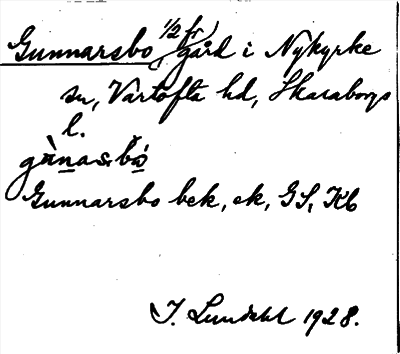 Gunnarsbo, 1/2 fr, gård i Nykyrke
sn, Vartofta hd, Skaraborgs
l.
gùnasbó
Gunnarsbo bek, ek, GS, Kb
I. Lundahl 1928.